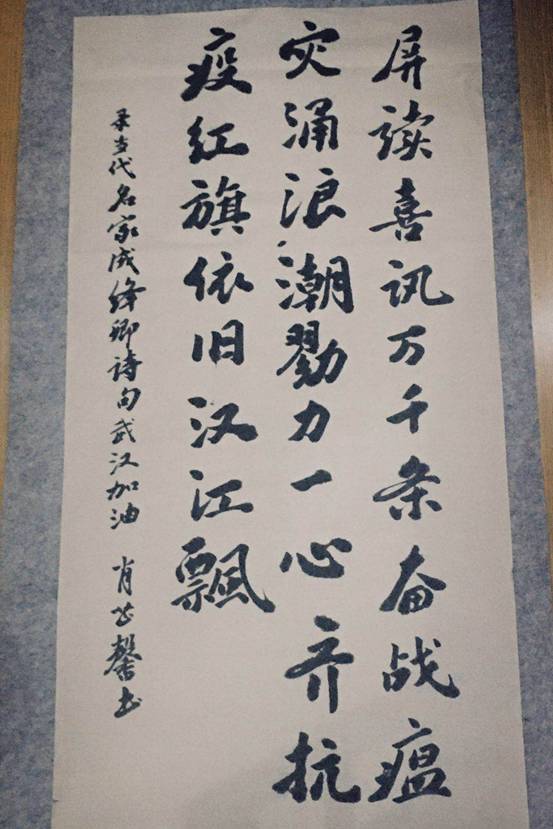 屏读喜讯万千条奋战瘟
灾涌浪潮勠力一心齐抗
疫红旗依旧汉江飘
录当代名家成绛卿诗句武汉加油 肖 馨书